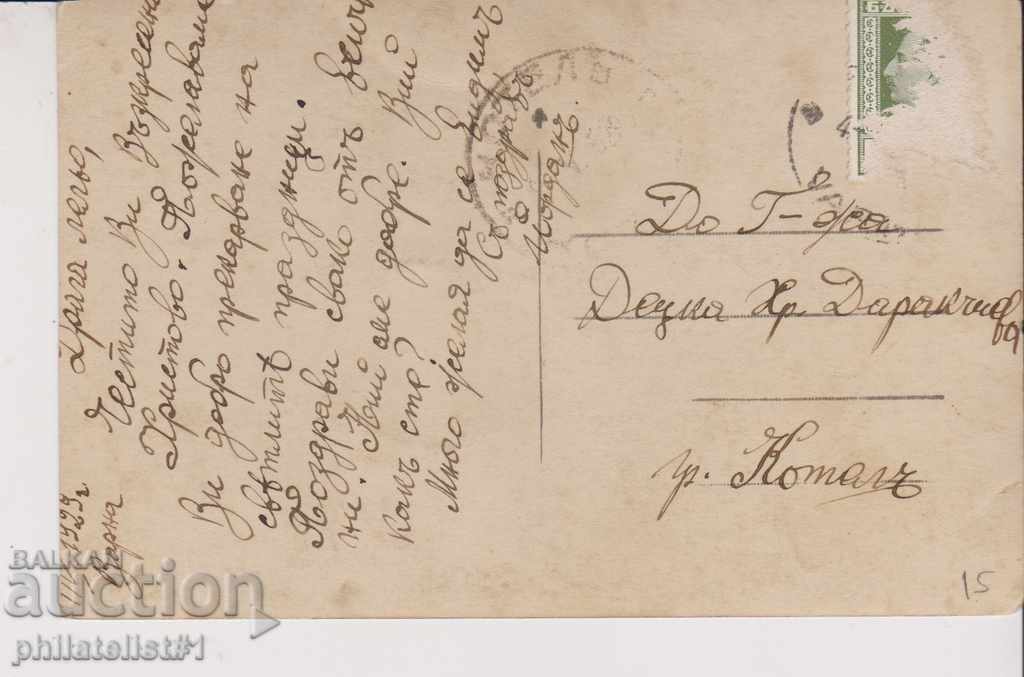 1929 г.
Варна
Драга лельо,
Честито Ви Възкресение
Христово. Пожелаваме
Ви добро прекарване на
светлитѣ праздници.
Поздрави свако отъ
ни. Ний сме добре. Вий
какъ сте?
Много желая да се видимъ
Съ поздравъ
Йорданъ
До Г-жа
Децка Хр. Даракчиева
гр. Котелъ
15
BALKAN
auction
philatelist#1